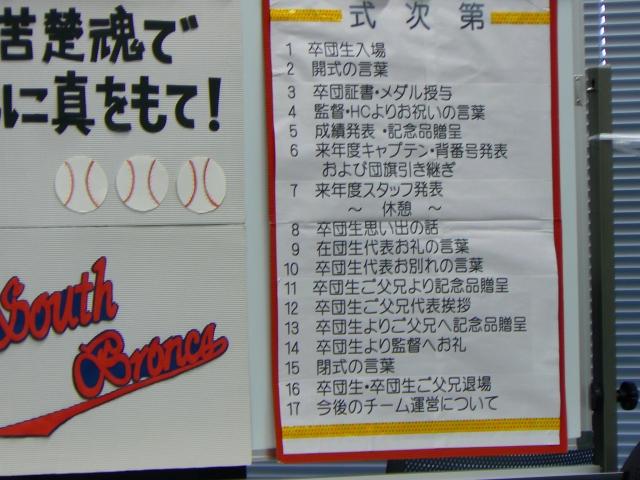 苦楚魂で
に真をもて!
South
Broncs
式次第
1 卒団生入場
2 開式の言葉
3 卒団証書・メダル授与
4 監督・HCよりお祝いの言葉
5 成績発表・記念品贈呈
6 来年度キャプテン・背番号発表
および団旗引き継ぎ
7 来年度スタッフ発表
～ 休憩 ～
8 卒団生思い出の話
9 在団生代表お礼の言葉
10 卒団生代表お別れの言葉
11 卒団生ご父兄より記念品贈呈
12 卒団生ご父兄代表挨拶
13 卒団生よりご父兄へ記念品贈呈
14 卒団生より監督へお礼
15 閉式の言葉
16 卒団生・卒団生ご父兄退場
17 今後のチーム運営について